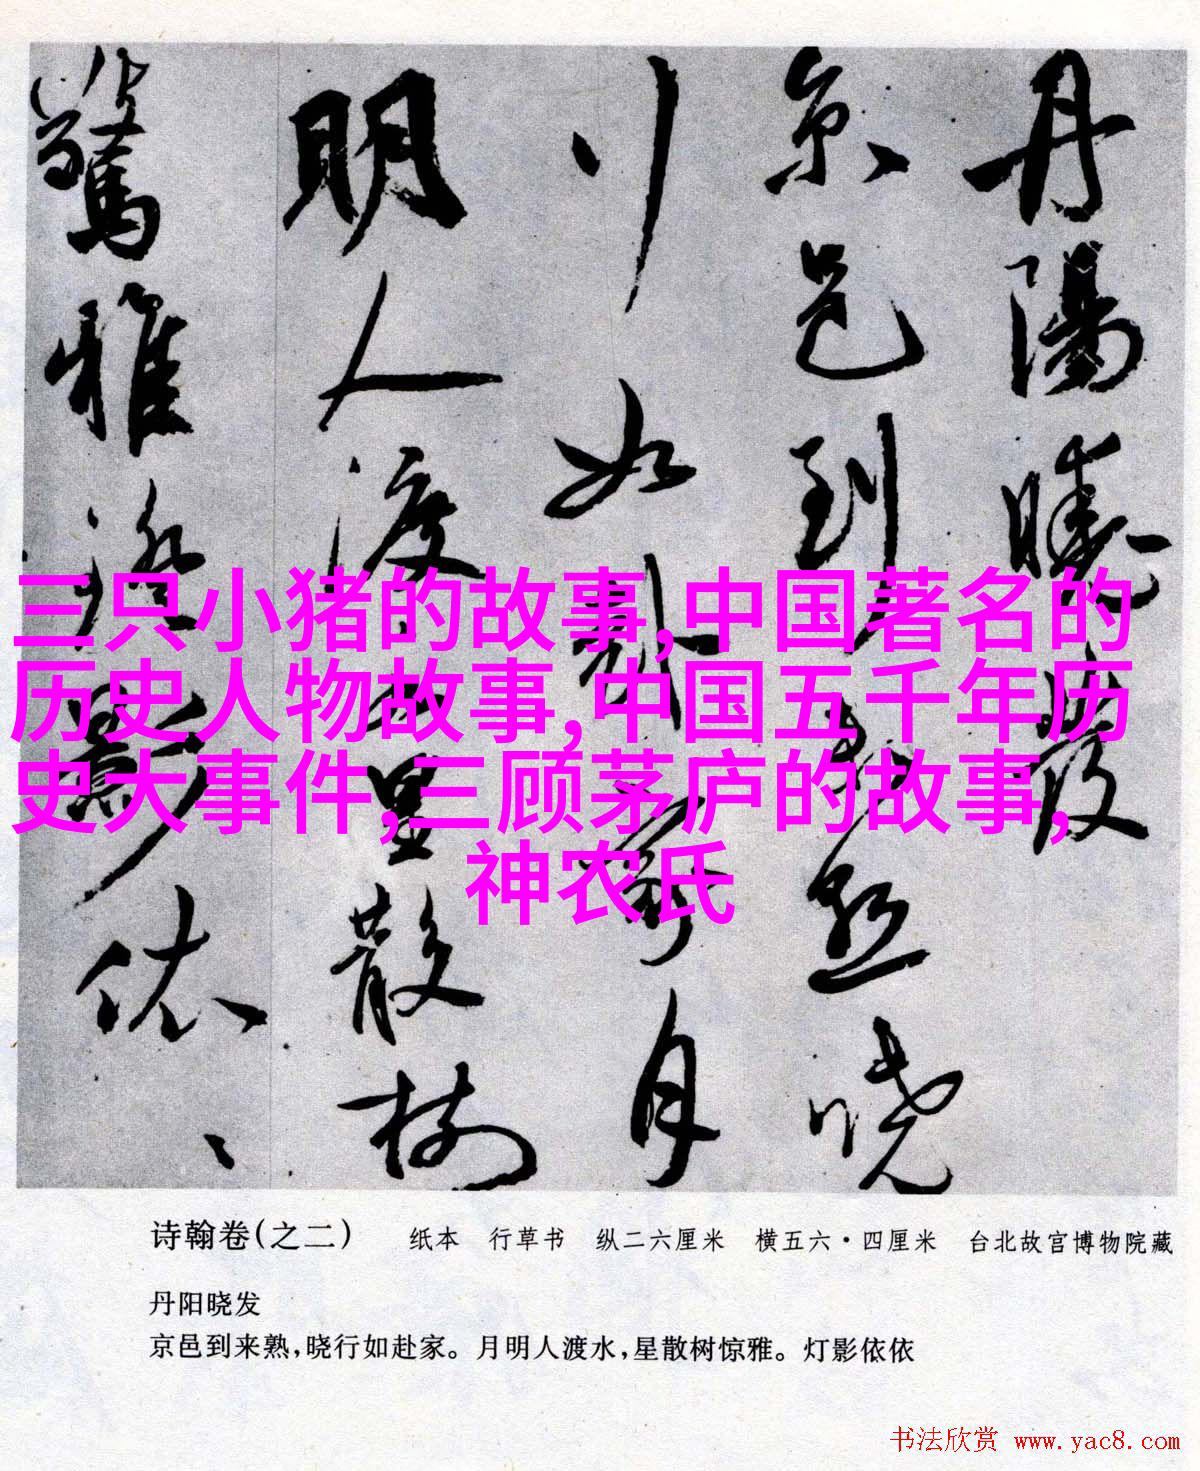 丹陽曉發
京邑到来熟曉
行如赴家月
明人渡水星散樹
驚雅燈影依、
三只小猪的故事,中国著名的
历史人物故事,中国五千年历
史大事件,三顾茅庐的故事,
神农氏
诗翰卷(之二) 纸本 行草书 纵二六厘米 横五六·四厘米 台北故宫博物院藏
丹阳晓发
京邑到来熟,晓行如赴家。月明人渡水,星散树惊雅。灯影依依
书法欣赏 www.yac8.com